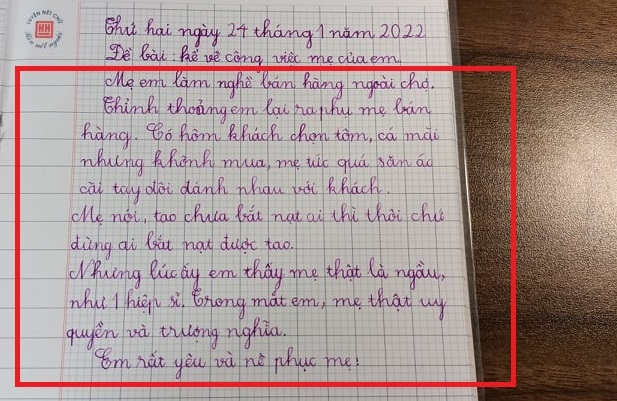 LUYỆN NÉT CHỮ
HH
Thứ hai ngày 24 tháng 1 năm 2022
Đề bài: kể về công việc mẹ của em.
Mẹ em làm nghề bán hàng ngoài chợ.
Thỉnh thoảng em lại ra phụ mẹ bán
hàng. Có hôm khách chọn tôm, cá mãi
nhưng không mua, mẹ tức quá săn áo
cài tay đòi đánh nhau với khách.
Mẹ nói, tao chưa bắt nạt ai thì thôi chứ
đừng ai bắt nạt được tao.
Những lúc ấy em thấy mẹ thật là ngầu,
như 1 hiệp sĩ. Trong mắt em, mẹ thật uy
quyền và trượng nghĩa.
Em rất yêu và nể phục mẹ!